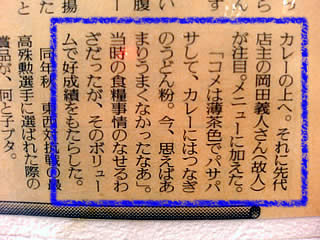 カレーの上へ。それに先代
店主の岡田義人さん(故人)
が注目。メニューに加えた。
「コメは薄茶色でパサパ
サして、カレーにはつなぎ
のうどん粉。今、思えばあ
まりうまくなかったなあ」。
当時の食糧事情のなせるわ
ざだったが、そのボリュー
ムで好成績をもたらした。
同年秋、東西対抗戦の最
高殊勲選手に選ばれた際の
賞品が、何と子ブタ。